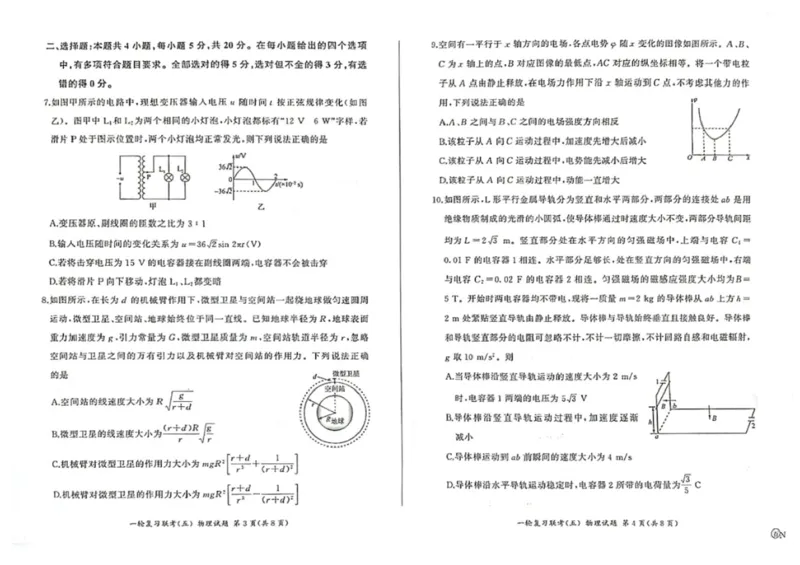 二、选择题:本题共 4 小题,每小题 5 分,共 20 分。在每小题给出的四个选项
中,有多项符合题目要求。全部选对的得 5 分,选对但不全的得 3 分,有选
错的得 0 分。
7.如图甲所示的电路中,理想变压器输入电压 u 随时间 t 按正弦规律变化(如图
乙)。图甲中 L₁和 L₂为两个相同的小灯泡,小灯泡都标有“12 V 6 W”字样,若
滑片 P 处于图示位置时,两个小灯泡均正常发光,则下列说法正确的是
~u P L₁ L₂
甲
u/V
36√2
0 1 2 t/(×10⁻²s)
-36√2
乙
A.变压器原、副线圈的匝数之比为 3∶1
B.输入电压随时间的变化关系为 u=36√2sin 2πt(V)
C.若将击穿电压为 15 V 的电容器接在副线圈两端,电容器不会被击穿
D.若将滑片 P 向下移动,灯泡 L₁、L₂都变暗
8.如图所示,在长为 d 的机械臂作用下,微型卫星与空间站一起绕地球做匀速圆周
运动,微型卫星、空间站、地球始终位于同一直线。已知地球半径为 R,地球表面
重力加速度为 g,引力常量为 G,微型卫星质量为 m,空间站轨道半径为 r,忽略
空间站与卫星之间的万有引力以及机械臂对空间站的作用力。下列说法正确
的是
d 微型卫星
空间站
r
R 地球
A.空间站的线速度大小为 R√(g/(r+d))
B.微型卫星的线速度大小为 ((r+d)R/r)√(g/r)
C.机械臂对微型卫星的作用力大小为 mgR²[(r+d)/r³+1/(r+d)²]
D.机械臂对微型卫星的作用力大小为 mgR²[(r+d)/r³-1/(r+d)²]
一轮复习联考(五) 物理试题 第 3 页(共 8 页)
9.空间有一平行于 x 轴方向的电场,各点电势 φ 随 x 变化的图像如图所示。A、B、
C 为 x 轴上的点,B 对应图像的最低点,AC 对应的纵坐标相等。将一个带电粒
子从 A 点由静止释放,在电场力作用下沿 x 轴运动到 C 点,不考虑其他力的作
用,下列说法正确的是
φ
O A B C x
A.A、B 之间与 B、C 之间的电场强度方向相反
B.该粒子从 A 向 C 运动过程中,加速度先增大后减小
C.该粒子从 A 向 C 运动过程中,电势能先减小后增大
D.该粒子从 A 向 C 运动过程中,动能一直增大
10.如图所示,L 形平行金属导轨分为竖直和水平两部分,两部分的连接处 ab 是用
绝缘物质制成的光滑的小圆弧,使导体棒通过时速度大小不变,两部分导轨间距
均为 L=2√3 m。竖直部分处在水平方向的匀强磁场中,上端与电容 C₁=
0.01 F 的电容器 1 相连。水平部分足够长,处在竖直方向的匀强磁场中,右端
与电容 C₂=0.02 F 的电容器 2 相连。匀强磁场的磁感应强度大小均为 B=
5 T。开始时两电容器均不带电,现将一质量 m=2 kg 的导体棒从 ab 上方 h=
2 m 处紧贴竖直导轨由静止释放。导体棒与导轨始终垂直且接触良好。导体棒
和导轨竖直部分的电阻可忽略不计,不计一切摩擦,不计回路自感和电磁辐射,
g 取 10 m/s²。则
A.当导体棒沿竖直导轨运动的速度大小为 2 m/s
时,电容器 1 两端的电压为 5√3 V
B.导体棒沿竖直导轨运动过程中,加速度逐渐
减小
C.导体棒运动到 ab 前瞬间的速度大小为 4 m/s
D.导体棒沿水平导轨运动稳定时,电容器 2 所带的电荷量为 √3/5 C
1
B b
h B
a 2
一轮复习联考(五) 物理试题 第 4 页(共 8 页)